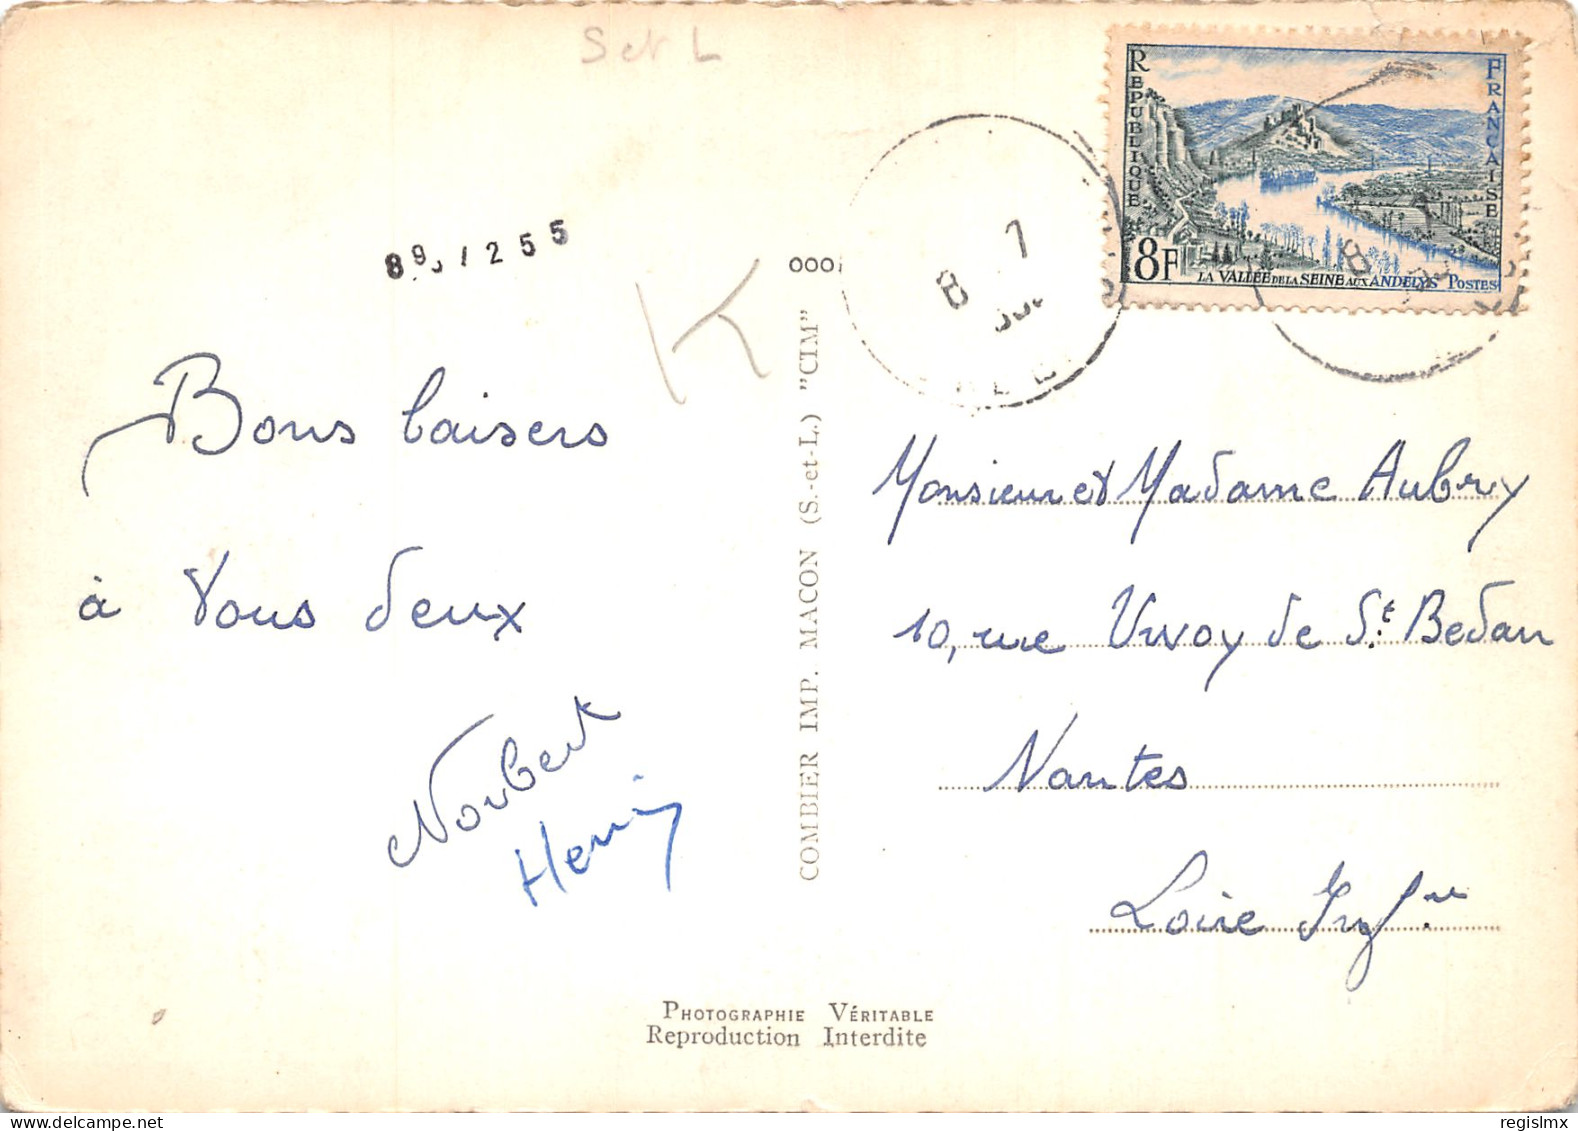 S et L
RÉPUBLIQUE FRANÇAISE
8F LA VALLÉE DE LA SEINE AUX ANDELYS POSTES
8 7
K
ooo
Bons baisers
à Vous deux
Norbert
Henri
COMBIER IMP. MACON (S.-et-L.) "CIM"
Monsieur et Madame Aubry
10, rue Urvoy de St. Bedan
Nantes
Loire Infre
PHOTOGRAPHIE VÉRITABLE
Reproduction Interdite
regislmx